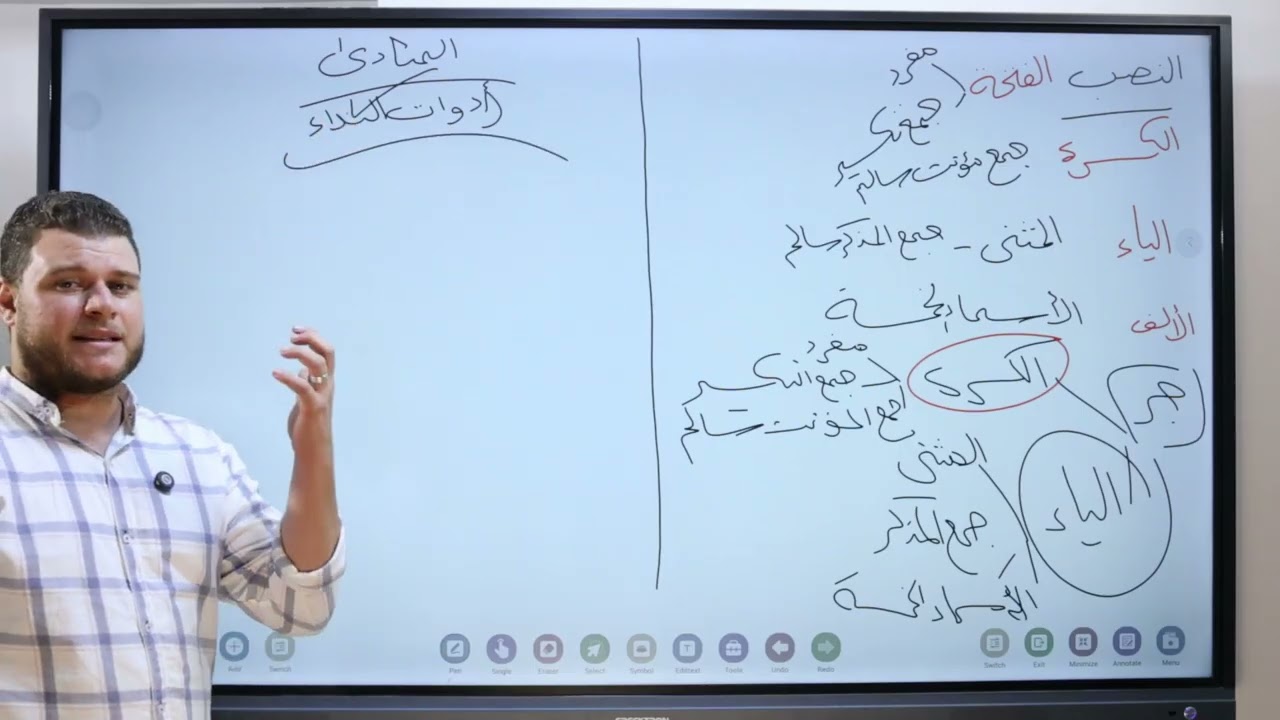 النصب الفتحة مفرد
جمع تكسير
الكسرة جمع مؤنث سالم
الياء المثنى - جمع المذكر سالم
الألف الأسماء الخمسة
جر الكسرة مفرد
جمع التكسير
جمع المؤنث سالم
الياء المثنى
جمع المذكر
الأسماء الخمسة
المنادى
أدوات النداء
Add Switch Pen Single Eraser Select Symbol Edittext Tools Undo Redo Switch Exit Minimize Annotate Menu